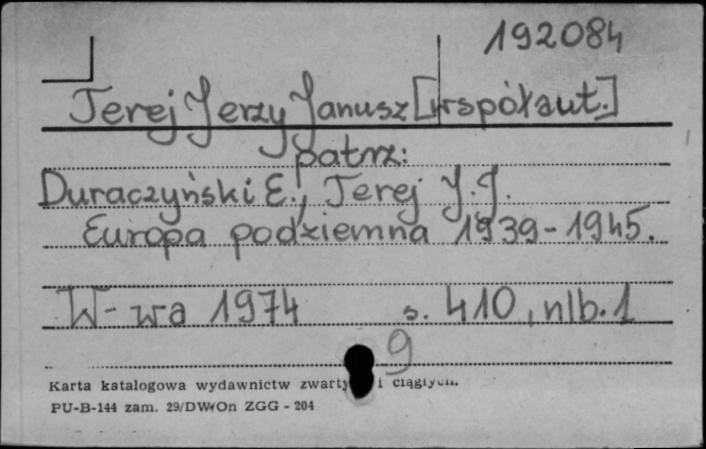 192084
Terej Jerzy Janusz [współaut.]
patrz:
Duraczyński E., Terej J.J.
Europa podziemna 1939-1945.
W-wa 1974 s. 410, nlb. 1
9
Karta katalogowa wydawnictw zwarty i ciągłych.
PU-B-144 zam. 29/DWrOn ZGG - 204